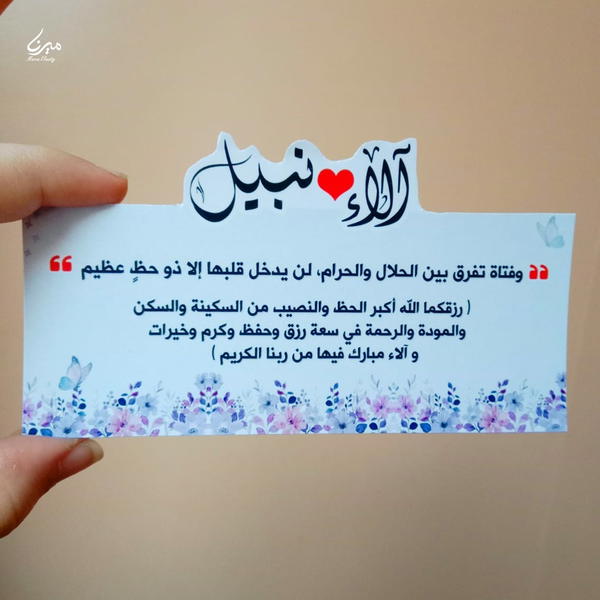 ميرنا
آلاء ❤ نبيل
” وفتاة تفرق بين الحلال والحرام، لن يدخل قلبها إلا ذو حظٍ عظيم “
( رزقكما الله أكبر الحظ والنصيب من السكينة والسكن
والمودة والرحمة في سعة رزق وحفظ وكرم وخيرات
و آلاء مبارك فيها من ربنا الكريم )